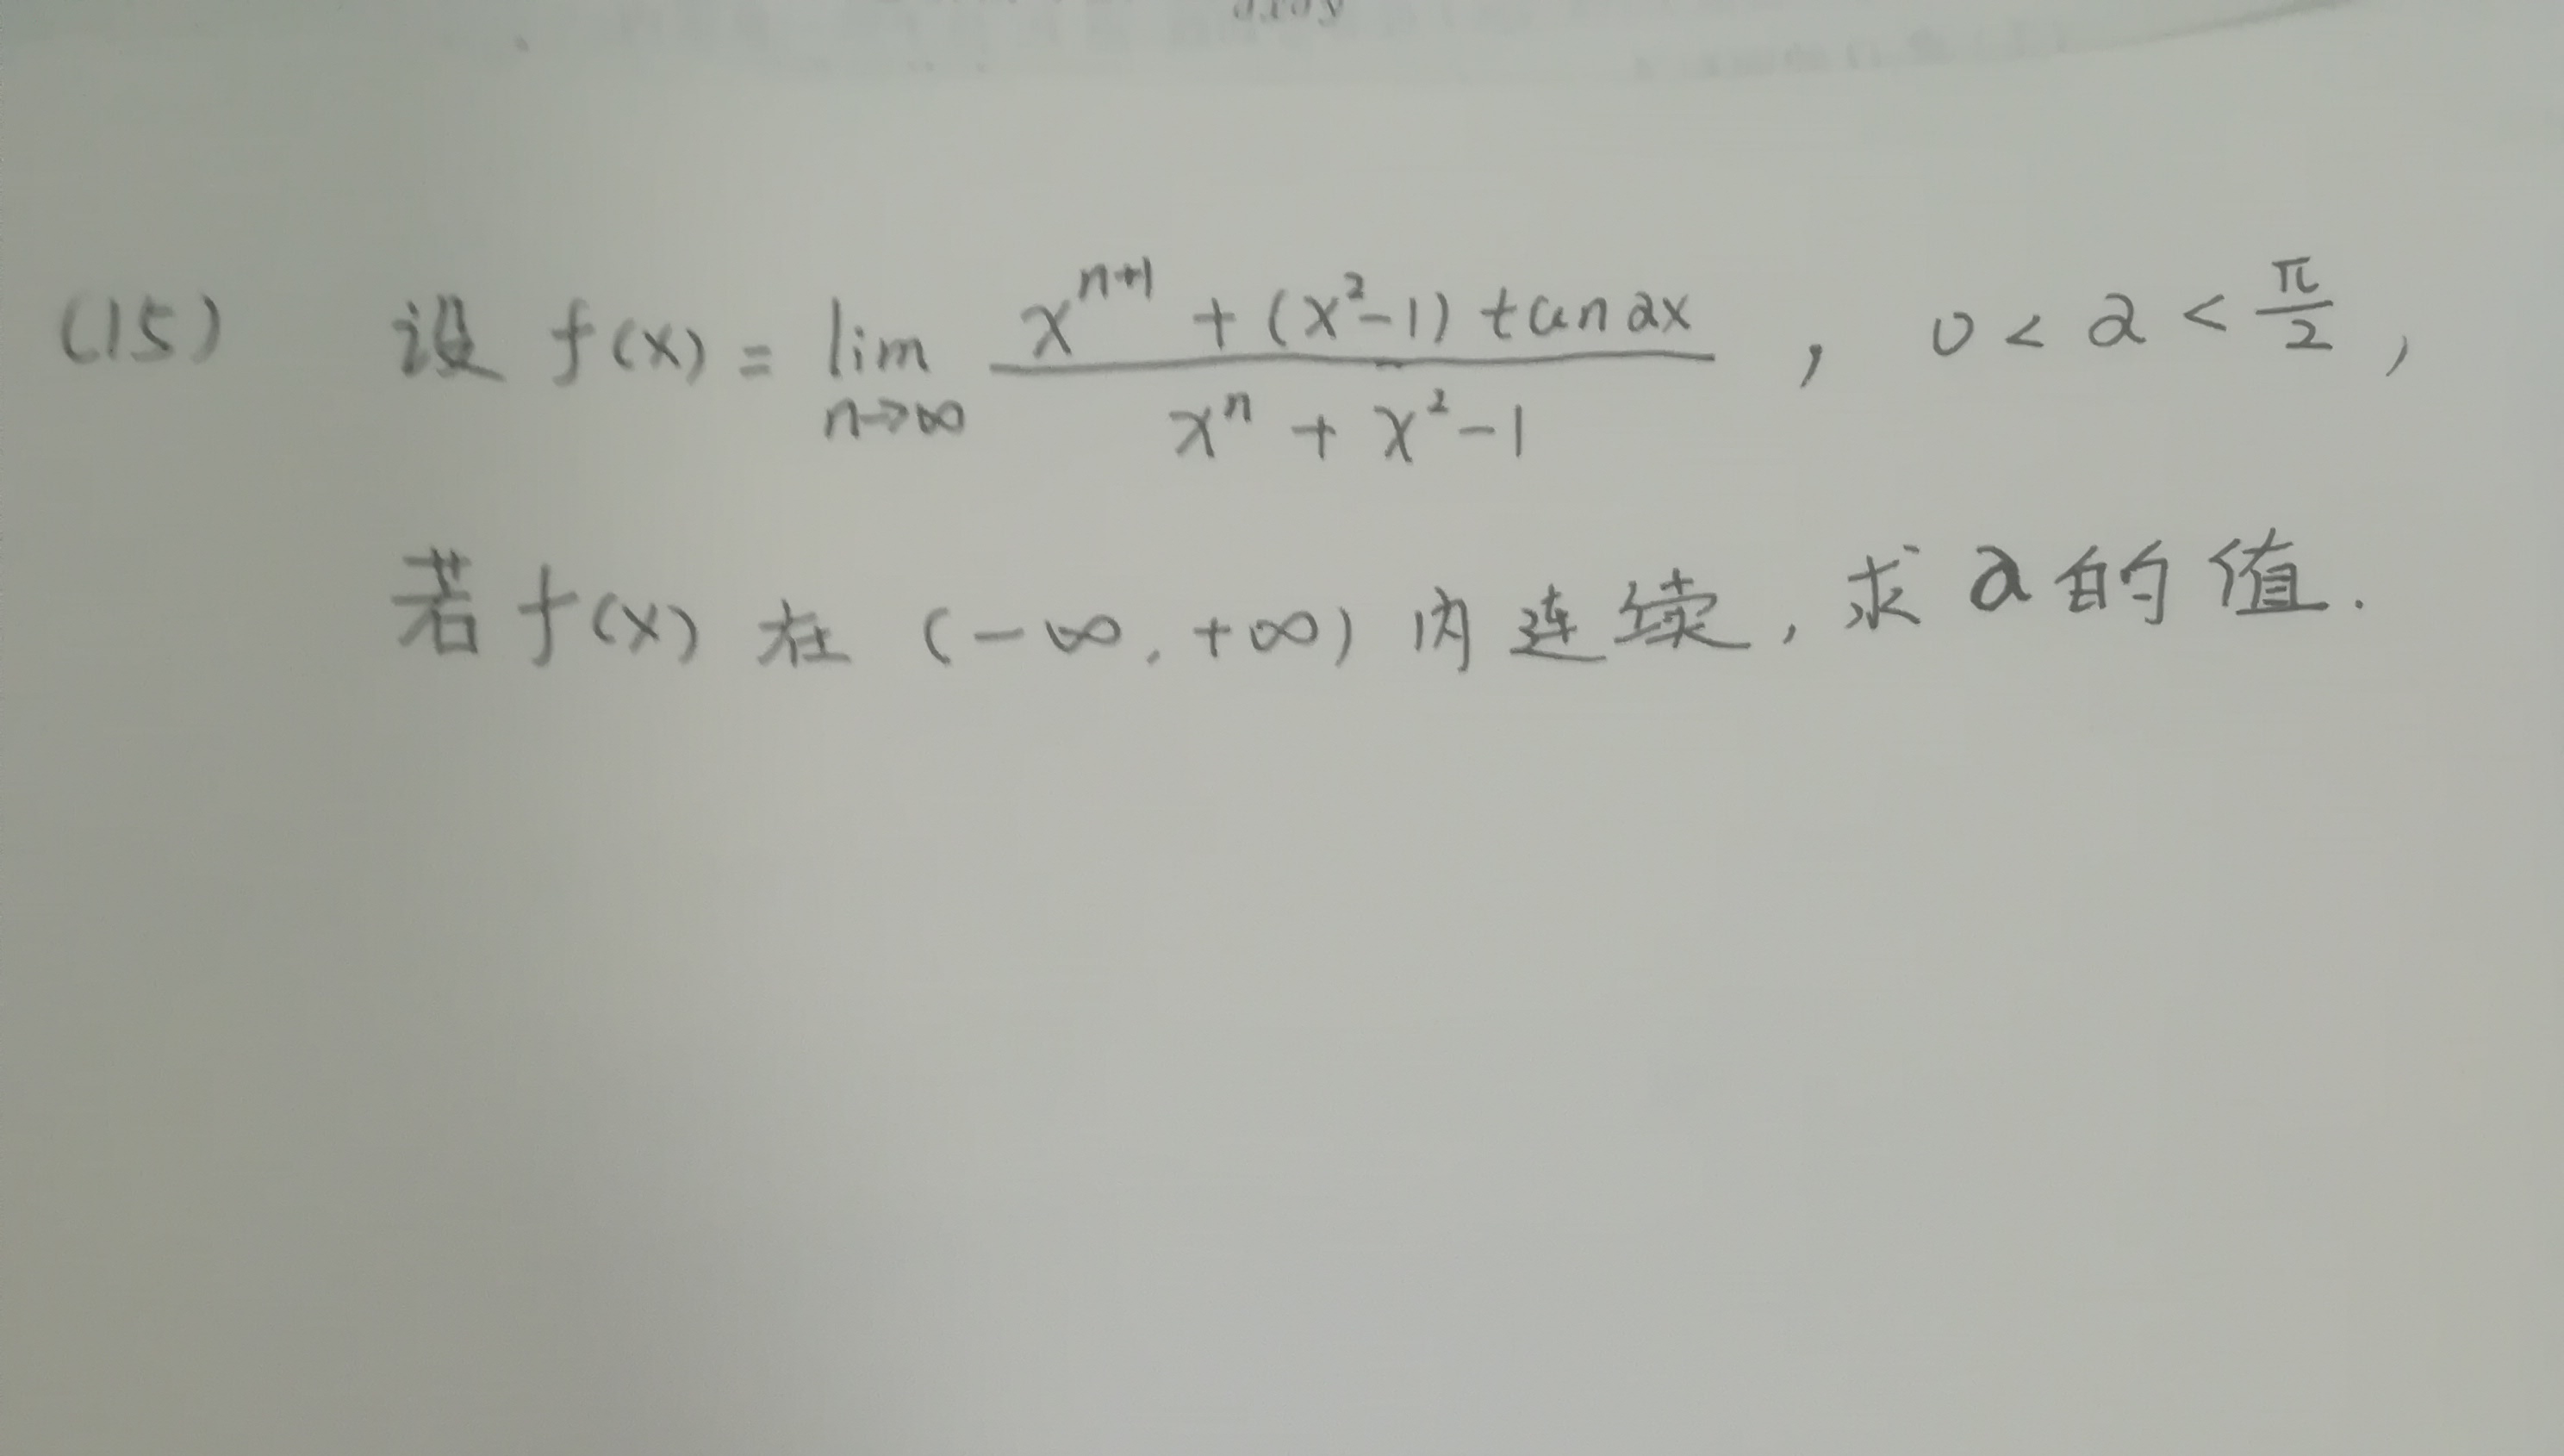 (15) 设 f(x) = lim_{n→∞} \frac{x^{n+1} + (x^2-1) tan ax}{x^n + x^2-1} , 0 < a < \frac{π}{2} ,
若 f(x) 在 (-∞, +∞) 内连续, 求 a 的值.